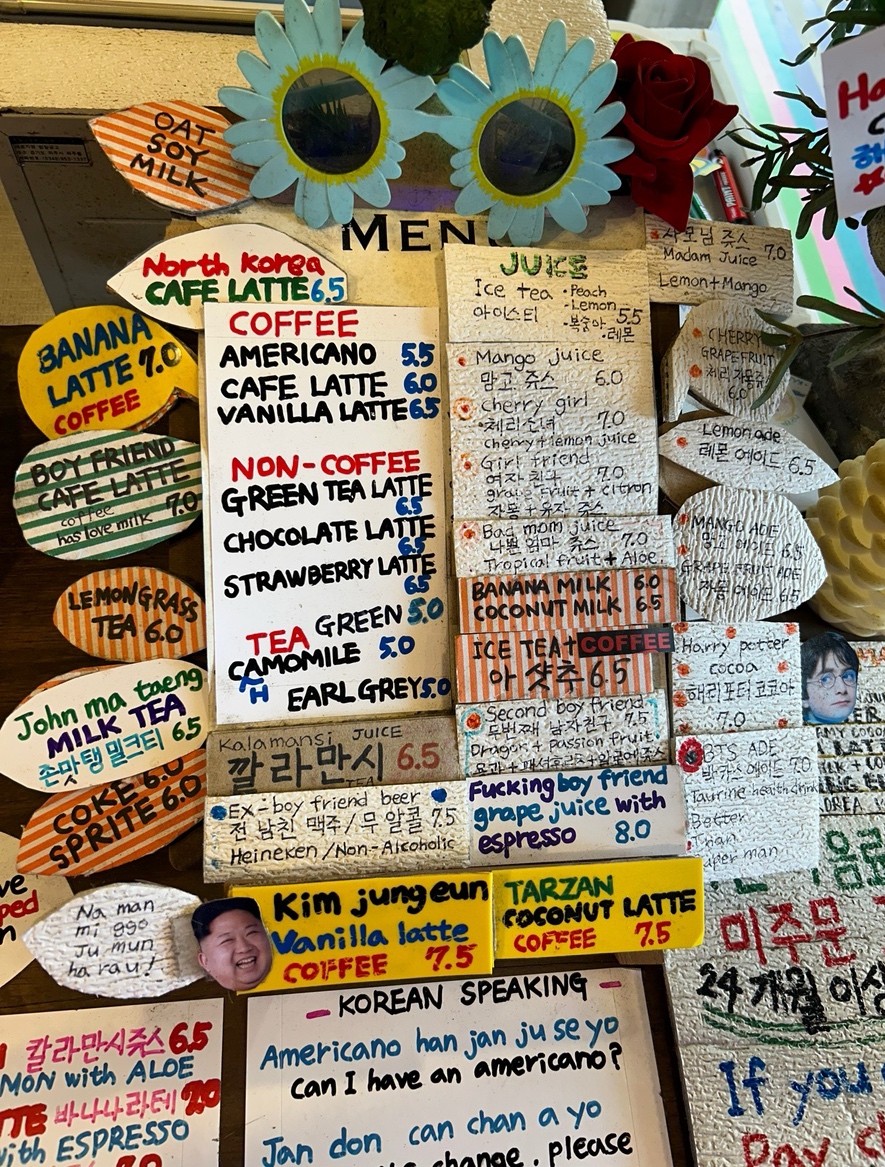 OAT
SOY
MILK
MEN
North Korea
CAFE LATTE 6.5
BANANA
LATTE 7.0
COFFEE
BOY FRIEND
CAFE LATTE
coffee 7.0
has love milk
LEMONGRASS
TEA 6.0
John ma taeng
MILK TEA
존맛탱 밀크티 6.5
COKE 6.0
SPRITE 6.0
COFFEE
AMERICANO 5.5
CAFE LATTE 6.0
VANILLA LATTE 6.5
NON-COFFEE
GREEN TEA LATTE
6.5
CHOCOLATE LATTE
6.5
STRAWBERRY LATTE
6.5
TEA GREEN 5.0
CAMOMILE 5.0
H EARL GREY 5.0
JUICE
Ice tea • Peach
아이스티 • Lemon 5.5
• 복숭아
• 레몬
Mango juice
망고 쥬스 6.0
Cherry girl
체리소녀 7.0
cherry + lemon juice
Girl friend
여자친구 7.0
grape fruit + citron
자몽 + 유자 쥬스
Bad mom juice
나쁜 엄마 쥬스 7.0
Tropical fruit + Aloe
BANANA MILK 6.0
COCONUT MILK 6.5
ICE TEA + COFFEE
아 샷추 6.5
Second boy friend
두번째 남자친구 7.5
Dragon + passion fruit
사모님 쥬스 7.0
Madam Juice
Lemon + Mango
CHERRY
GRAPE FRUIT
체리 자몽
6.0
Lemon ade
레몬 에이드 6.5
MANGO ADE
망고 에이드 6.5
GRAPE FRUIT ADE
자몽 에이드 6.5
Harry potter
cocoa
해리포터 코코아
7.0
BTS ADE
박카스에이드 7.0
Taurine health drink
Better
han
uper man
Kalamansi JUICE
깔라만시 6.5
TEA
EX-boy friend beer
전 남친 맥주/무 알콜 7.5
Heineken / Non-Alcoholic
Fucking boy friend
grape juice with
espresso 8.0
Na man
mi ggo
Ju mun
ha rau!
Kim jung eun
Vanilla latte
COFFEE 7.5
TARZAN
COCONUT LATTE
COFFEE 7.5
칼라만시쥬스 6.5
MON with ALOE
TTE 바나나라테 7.0
with ESPRESSO
7.0
- KOREAN SPEAKING -
Americano han jan ju se yo
Can I have an americano?
Jan don can chan a yo
change, please
미주문
24개월 이상
If you
Pay c